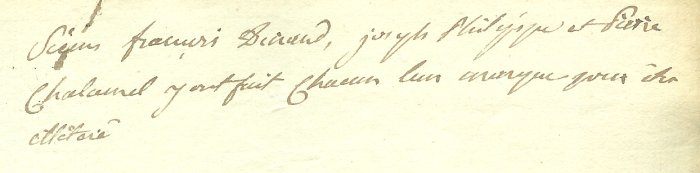 Siens francois Durand, joseph Philippe et Pierre
Chalamel y ont fait Chacun leur marque pour être
illiteré